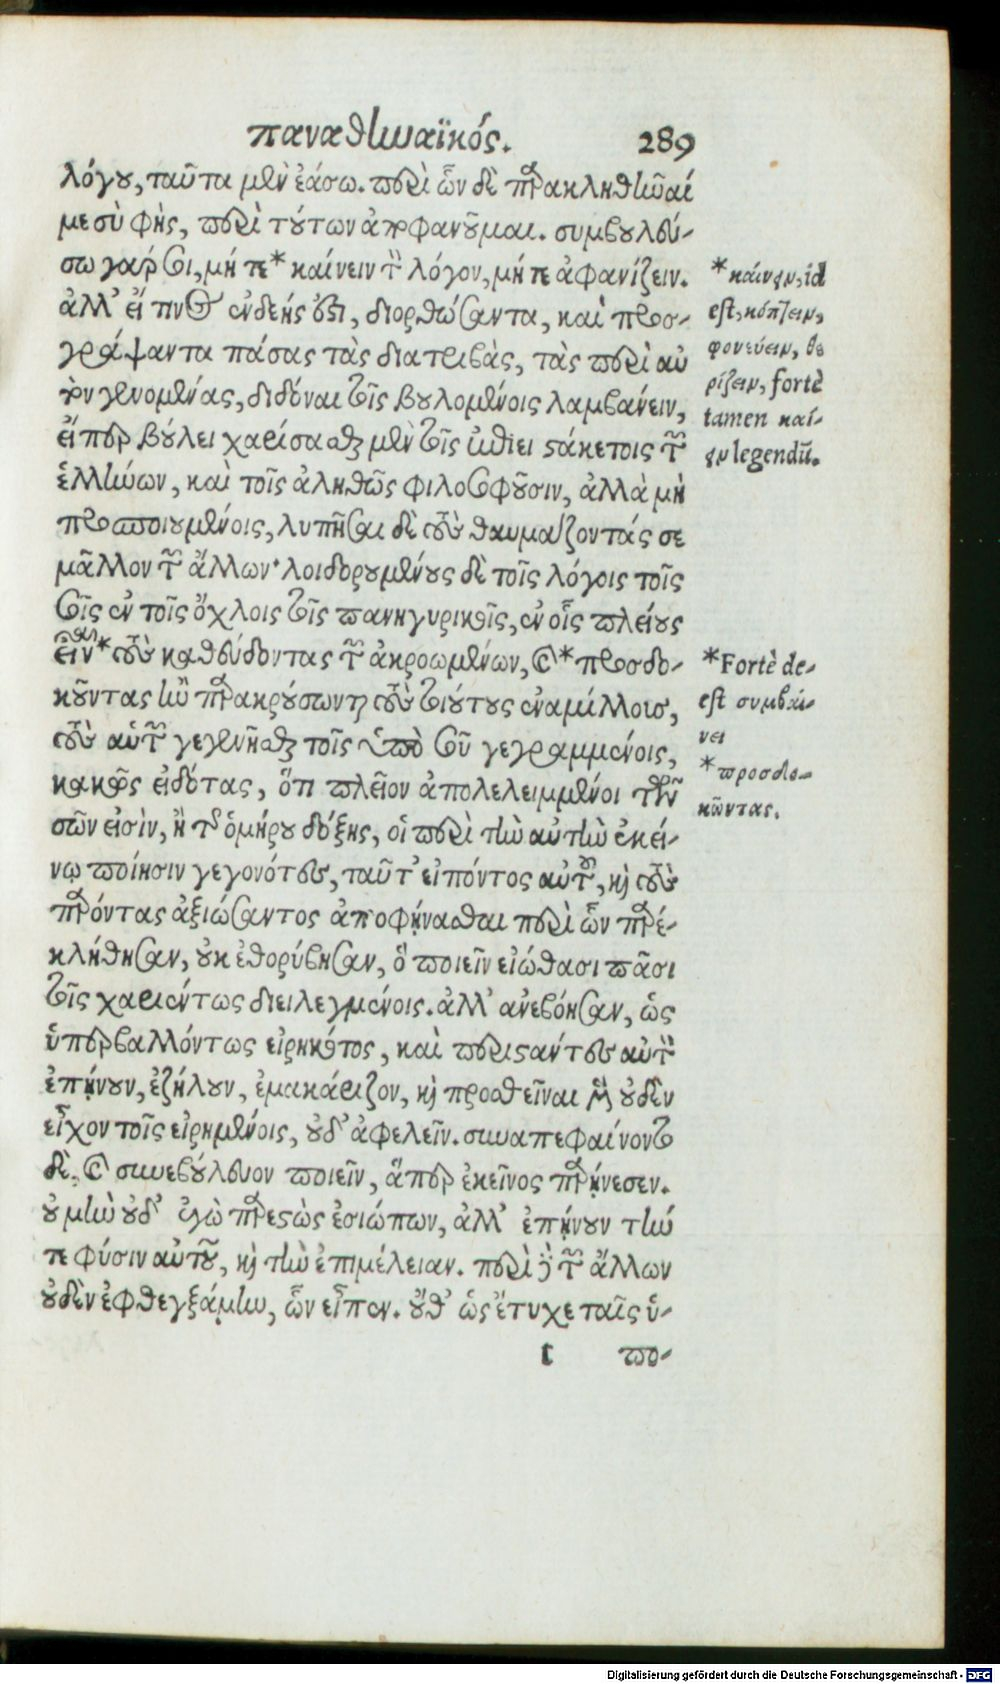 παναθηναϊκός. 289
λόγου, ταῦτα μὲν ἐάσω. περὶ ὧν δὲ παρακληθῆναί
με σὺ φῂς, περὶ τούτων ἀποφανοῦμαι. συμβουλεύ-
σω γάρ σοι, μήτε* καίνειν τὸν λόγον, μήτε ἀφανίζειν.
ἀλλ' εἴ τινος ἐνδεής ἐστι, διορθώσαντα, καὶ προσ-
γράψαντα πάσας τὰς διατριβὰς, τὰς περὶ αὐ
τὸν γενομένας, διδόναι τοῖς βουλομένοις λαμβάνειν,
εἴπερ βούλει χαρίσασθαι μὲν τοῖς ἐπιεικεστάτοις τῶν
ἑλλήνων, καὶ τοῖς ἀληθῶς φιλοσοφοῦσιν, ἀλλὰ μὴ
προσποιουμένοις, λυπῆσαι δὲ τοὺς θαυμάζοντάς σε
μᾶλλον τῶν ἄλλων· λοιδορουμένους δὲ τοῖς λόγοις τοῖς
τοῖς ἐν τοῖς ὄχλοις τοῖς πανηγυρικοῖς, ἐν οἷς πλείους
εἶναι* τοὺς καθεύδοντας τῶν ἀκροωμένων, καὶ* προσδο-
κοῦντας ἢν παρακρούσωνται τοὺς τοιούτους ἐναμίλλους,
τοὺς αὑτῶν γεγενῆσθαι τοῖς ὑπὸ σοῦ γεγραμμένοις,
κακῶς εἰδότας, ὅτι πλεῖον ἀπολελειμμένοι τῶν
σῶν εἰσὶν, ἢ τῆς ὁμήρου δόξης, οἱ περὶ τὴν αὐτὴν ἐκεί-
νῳ ποίησιν γεγονότες, ταῦτ' εἰπόντος αὐτοῦ, καὶ τοὺς
παρόντας ἀξιώσαντος ἀποφήνασθαι περὶ ὧν παρε-
κλήθησαν, οὐκ ἐθορύβησαν, ὃ ποιεῖν εἰώθασι πᾶσι
τοῖς χαριέντως διειλεγμένοις. ἀλλ' ἀνεβόησαν, ὡς
ὑπερβαλλόντως εἰρηκότος, καὶ περιστάντες αὐτὸν
ἐπῄνουν, ἐζήλουν, ἐμακάριζον, καὶ προσθεῖναι μὲν οὐδὲν
εἶχον τοῖς εἰρημένοις, οὐδ' ἀφελεῖν. συναπεφαίνοντο
δὲ, καὶ συνεβούλευον ποιεῖν, ἅπερ ἐκεῖνος παρῄνεσεν.
οὐ μὴν οὐδ' ἐγὼ παρεστὼς ἐσιώπων, ἀλλ' ἐπῄνουν τήν
τε φύσιν αὐτοῦ, καὶ τὴν ἐπιμέλειαν. περὶ δὲ τῶν ἄλλων
οὐδὲν ἐφθεγξάμην, ὧν εἶπεν. οὔθ' ὡς ἔτυχε ταῖς ὑ-
πο-
*καίνειν, id
est, κόπτειν,
φονεύειν, θε
ρίζειν, fortè
tamen καί-
ειν legendū.
*Fortè de-
est συμβαί-
νει
*προσδο-
κῶντας.
Digitalisierung gefördert durch die Deutsche Forschungsgemeinschaft - DFG